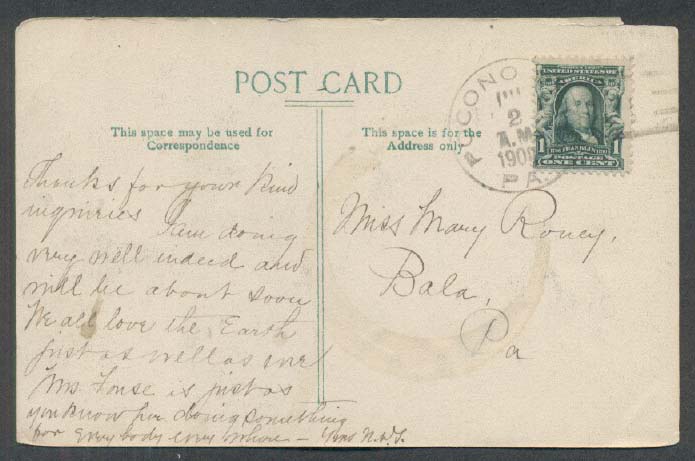 POST CARD
This space may be used for
Correspondence
This space is for the
Address only
POCONO
2
A.M.
1908
PA.
UNITED STATES OF
AMERICA
1 1
FRANKLIN
POSTAGE
ONE CENT
Thanks for your kind
inquiries I am doing
very well indeed and
will be about soon
We all love the Earth
just as well as ever
Mrs. is just as
you know her doing something
for every body every where – Yours
Miss Mary Roney,
Bala,
Pa